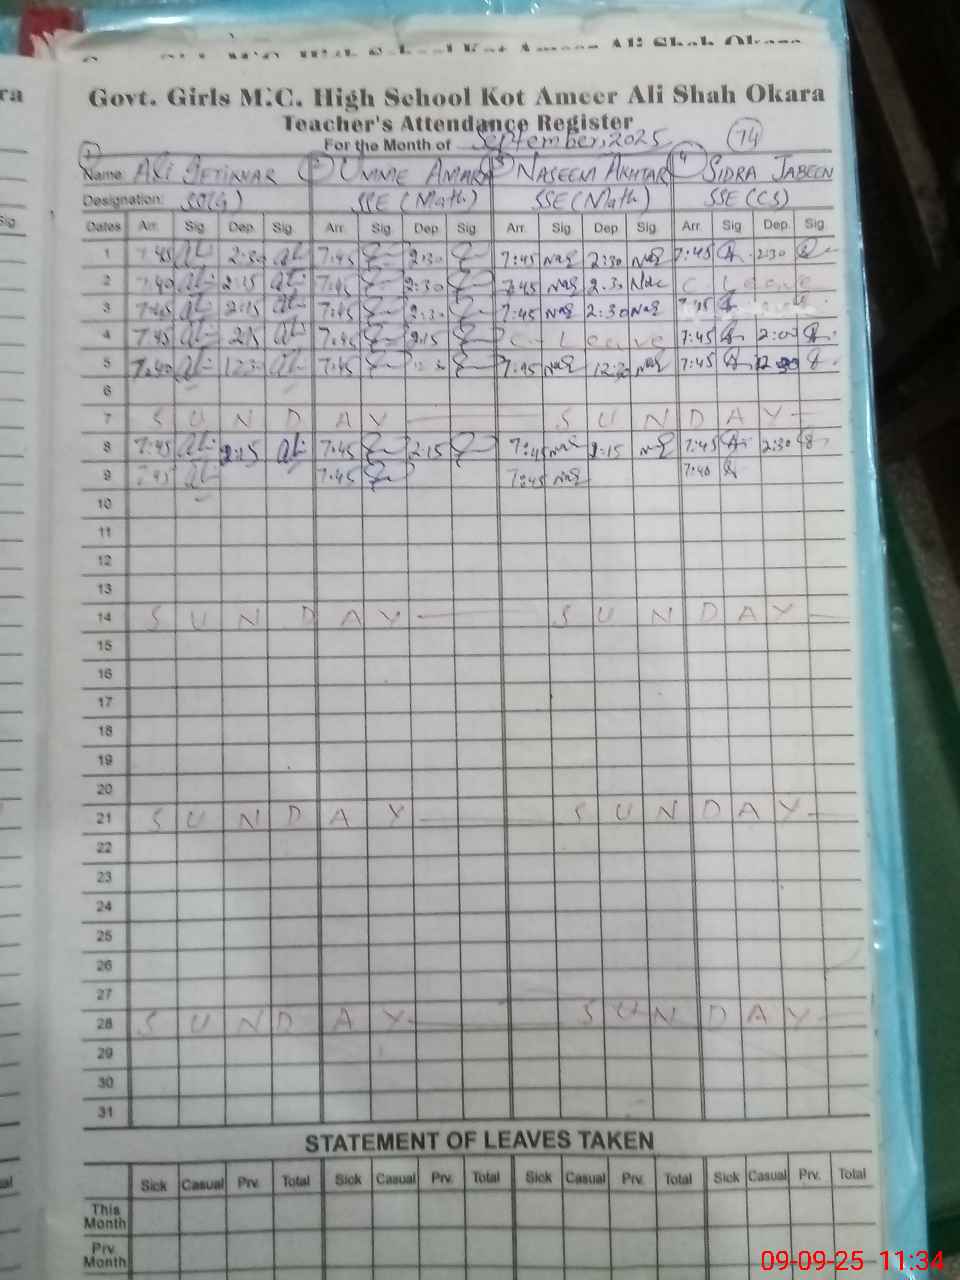 Govt. Girls M.C. High School Kot Ameer Ali Shah Okara
Teacher's Attendance Register
For the Month of September, 2025 74
Name 1 Ali Iftikhar 2 Umme Amara 3 Naseem Akhtar 4 Sidra Jabeen
Designation: SSE (Math) SSE (Math) SSE (CS)
Dates Arr. Sig. Dep. Sig. Arr. Sig. Dep. Sig. Arr. Sig. Dep. Sig. Arr. Sig. Dep. Sig.
1 7:45 2:30 7:45 2:30 7:45 2:30 7:45 2:30
2 7:40 2:15 7:45 2:30 7:45 2:30 C. Leave
3 7:45 2:15 7:45 2:30 7:45 2:30 7:45
4 7:45 2:15 7:45 2:15 C. Leave 7:45 2:00
5 7:40 12:30 7:45 12:30 7:45 12:30 7:45 12:30
6
7 SUNDAY SUNDAY
8 7:45 2:15 7:45 2:15 7:45 2:15 7:45 2:30
9 7:45 7:45 7:45 7:40
10
11
12
13
14 SUNDAY SUNDAY
15
16
17
18
19
20
21 SUNDAY SUNDAY
22
23
24
25
26
27
28 SUNDAY SUNDAY
29
30
31
STATEMENT OF LEAVES TAKEN
Sick Casual Prv. Total Sick Casual Prv. Total Sick Casual Prv. Total Sick Casual Prv. Total
This Month
Prv. Month
09-09-25 11:34